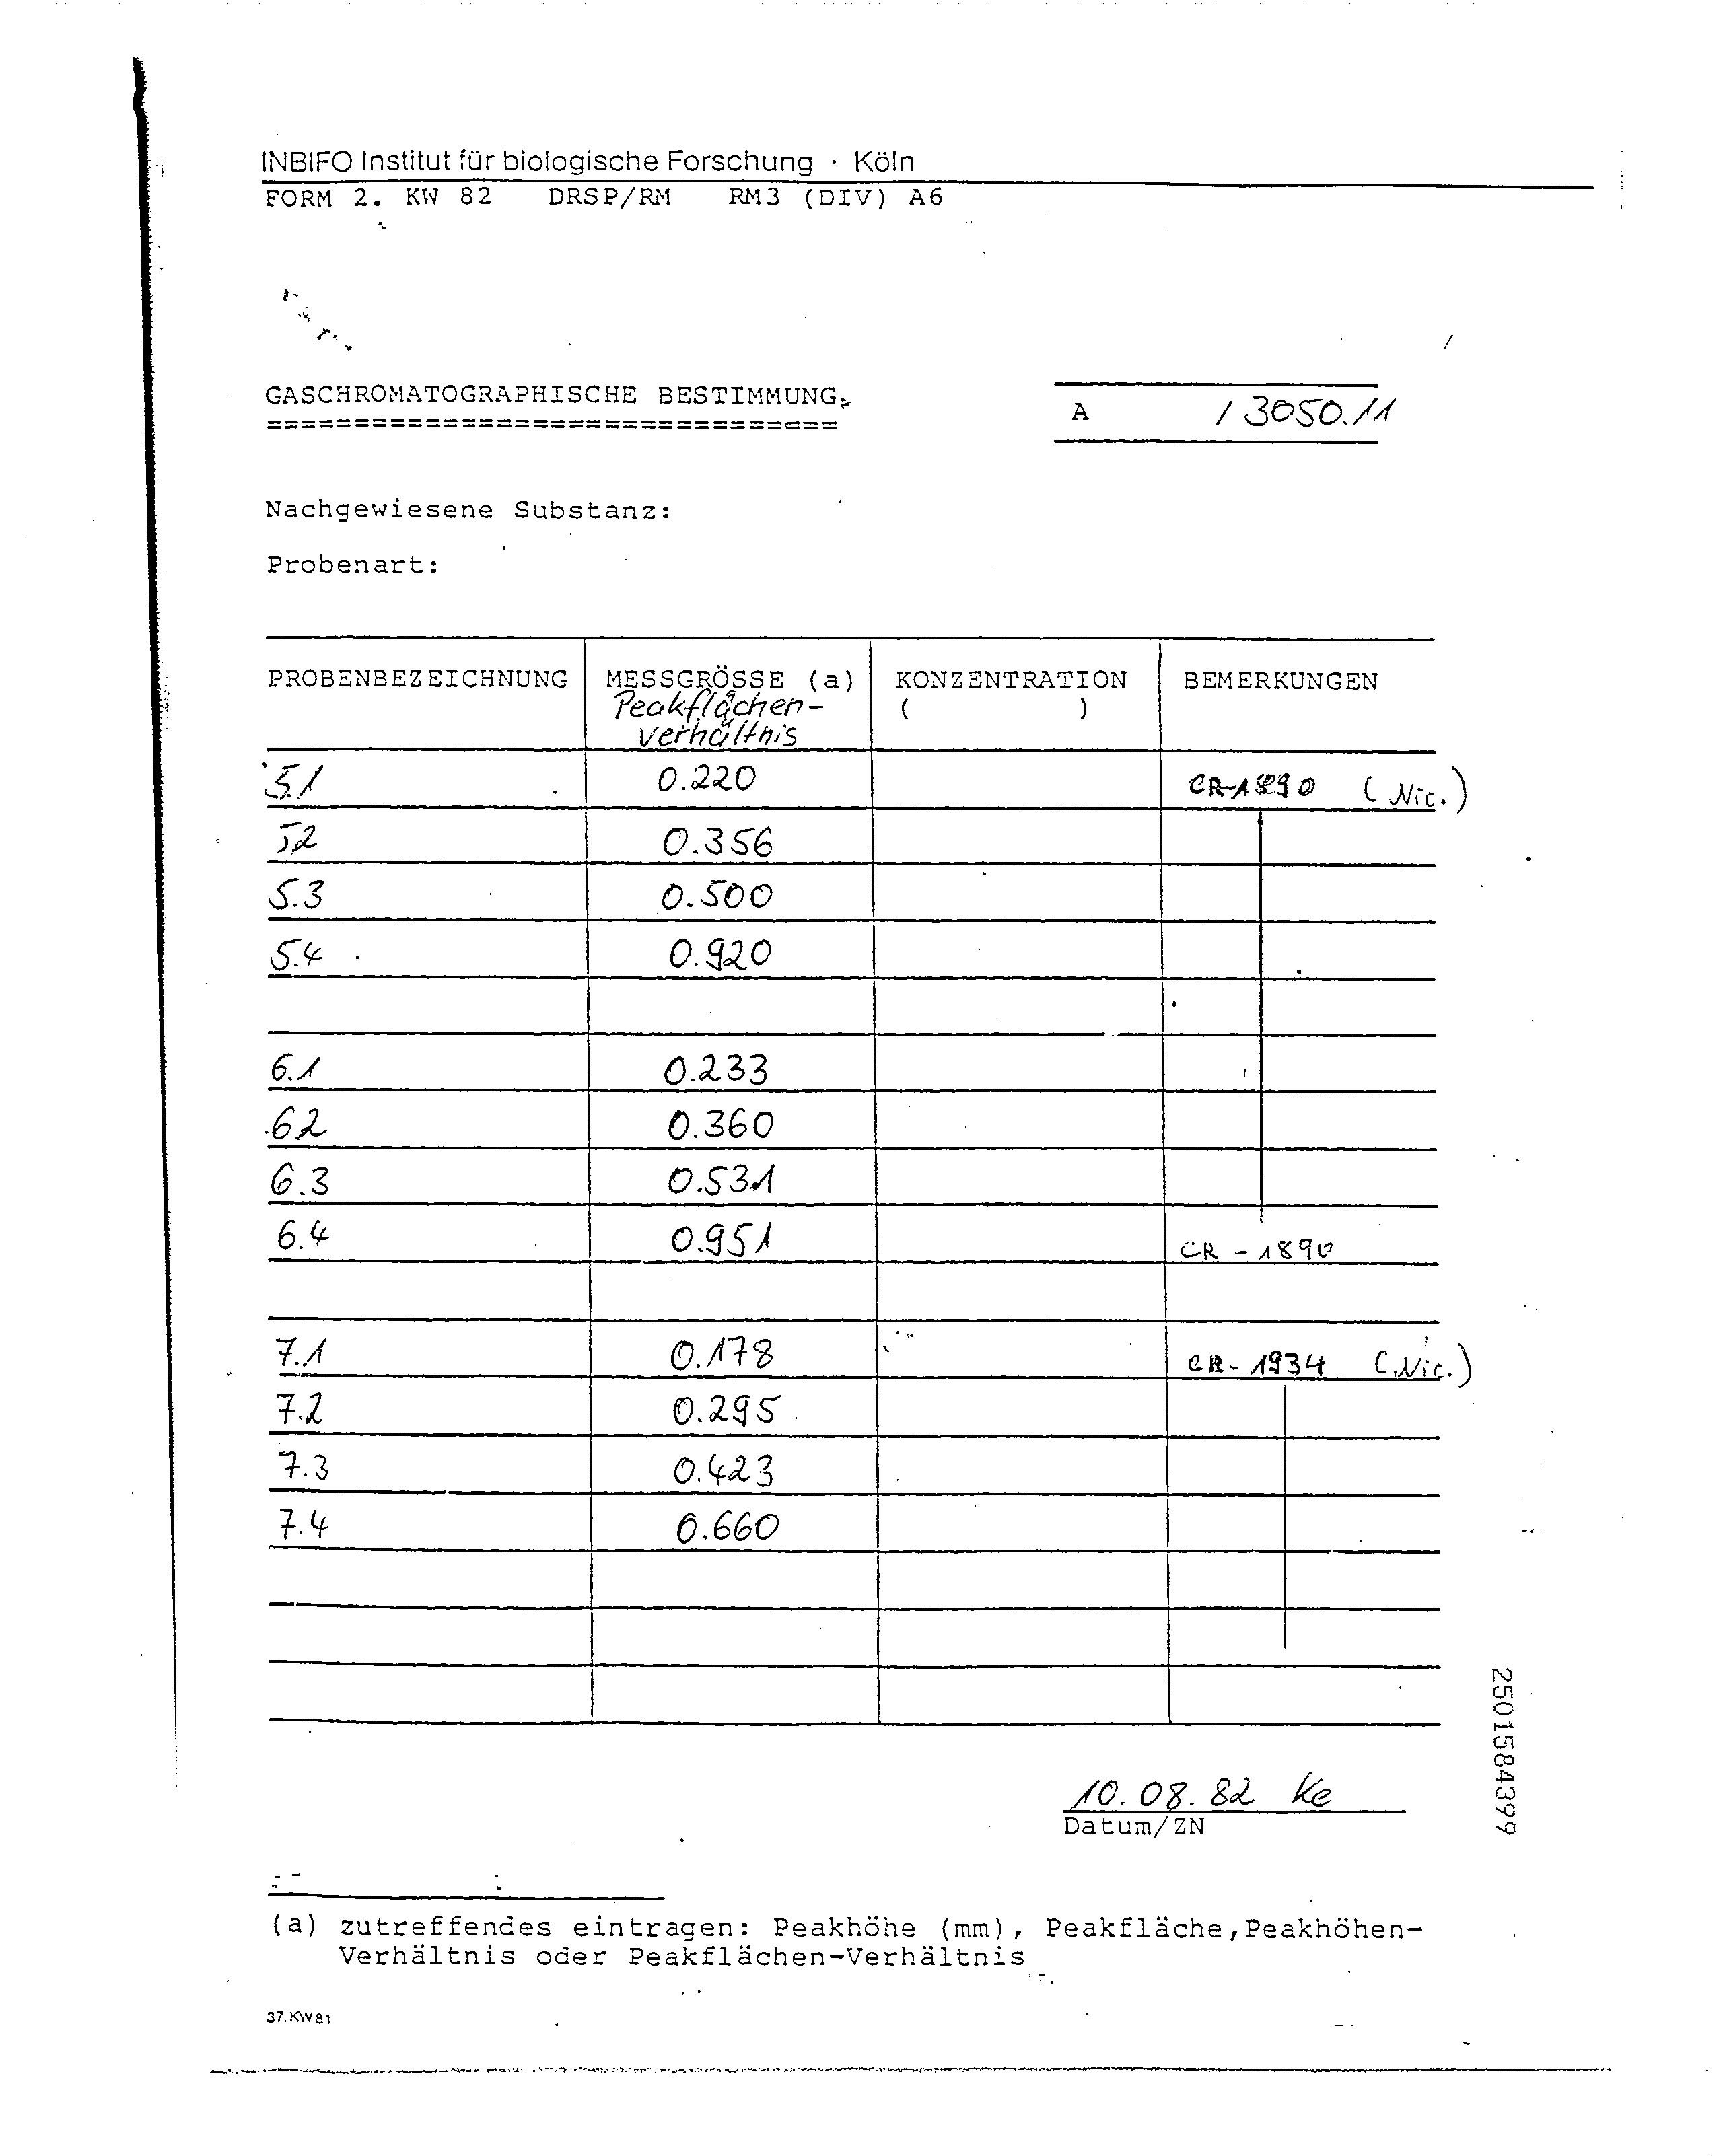 INBIFO Institut für biologische Forschung · Köln
FORM 2. KW 82 DRSP/RM RM3 (DIV) A6
GASCHROMATOGRAPHISCHE BESTIMMUNG
=================================
A / 3050.11
Nachgewiesene Substanz:
Probenart:
PROBENBEZEICHNUNG MESSGRÖSSE (a) KONZENTRATION BEMERKUNGEN
Peakflächen- ( )
verhältnis
5.1 0.220 CR-1890 (Nic.)
5.2 0.356
5.3 0.500
5.4 0.920
6.1 0.233
6.2 0.360
6.3 0.531
6.4 0.951 CR - 1890
7.1 0.178 CR - 1934 (Nic.)
7.2 0.295
7.3 0.423
7.4 0.660
10.08.82 Ke
Datum/ZN
(a) zutreffendes eintragen: Peakhöhe (mm), Peakfläche,Peakhöhen-
Verhältnis oder Peakflächen-Verhältnis
37.KW81
2501584399